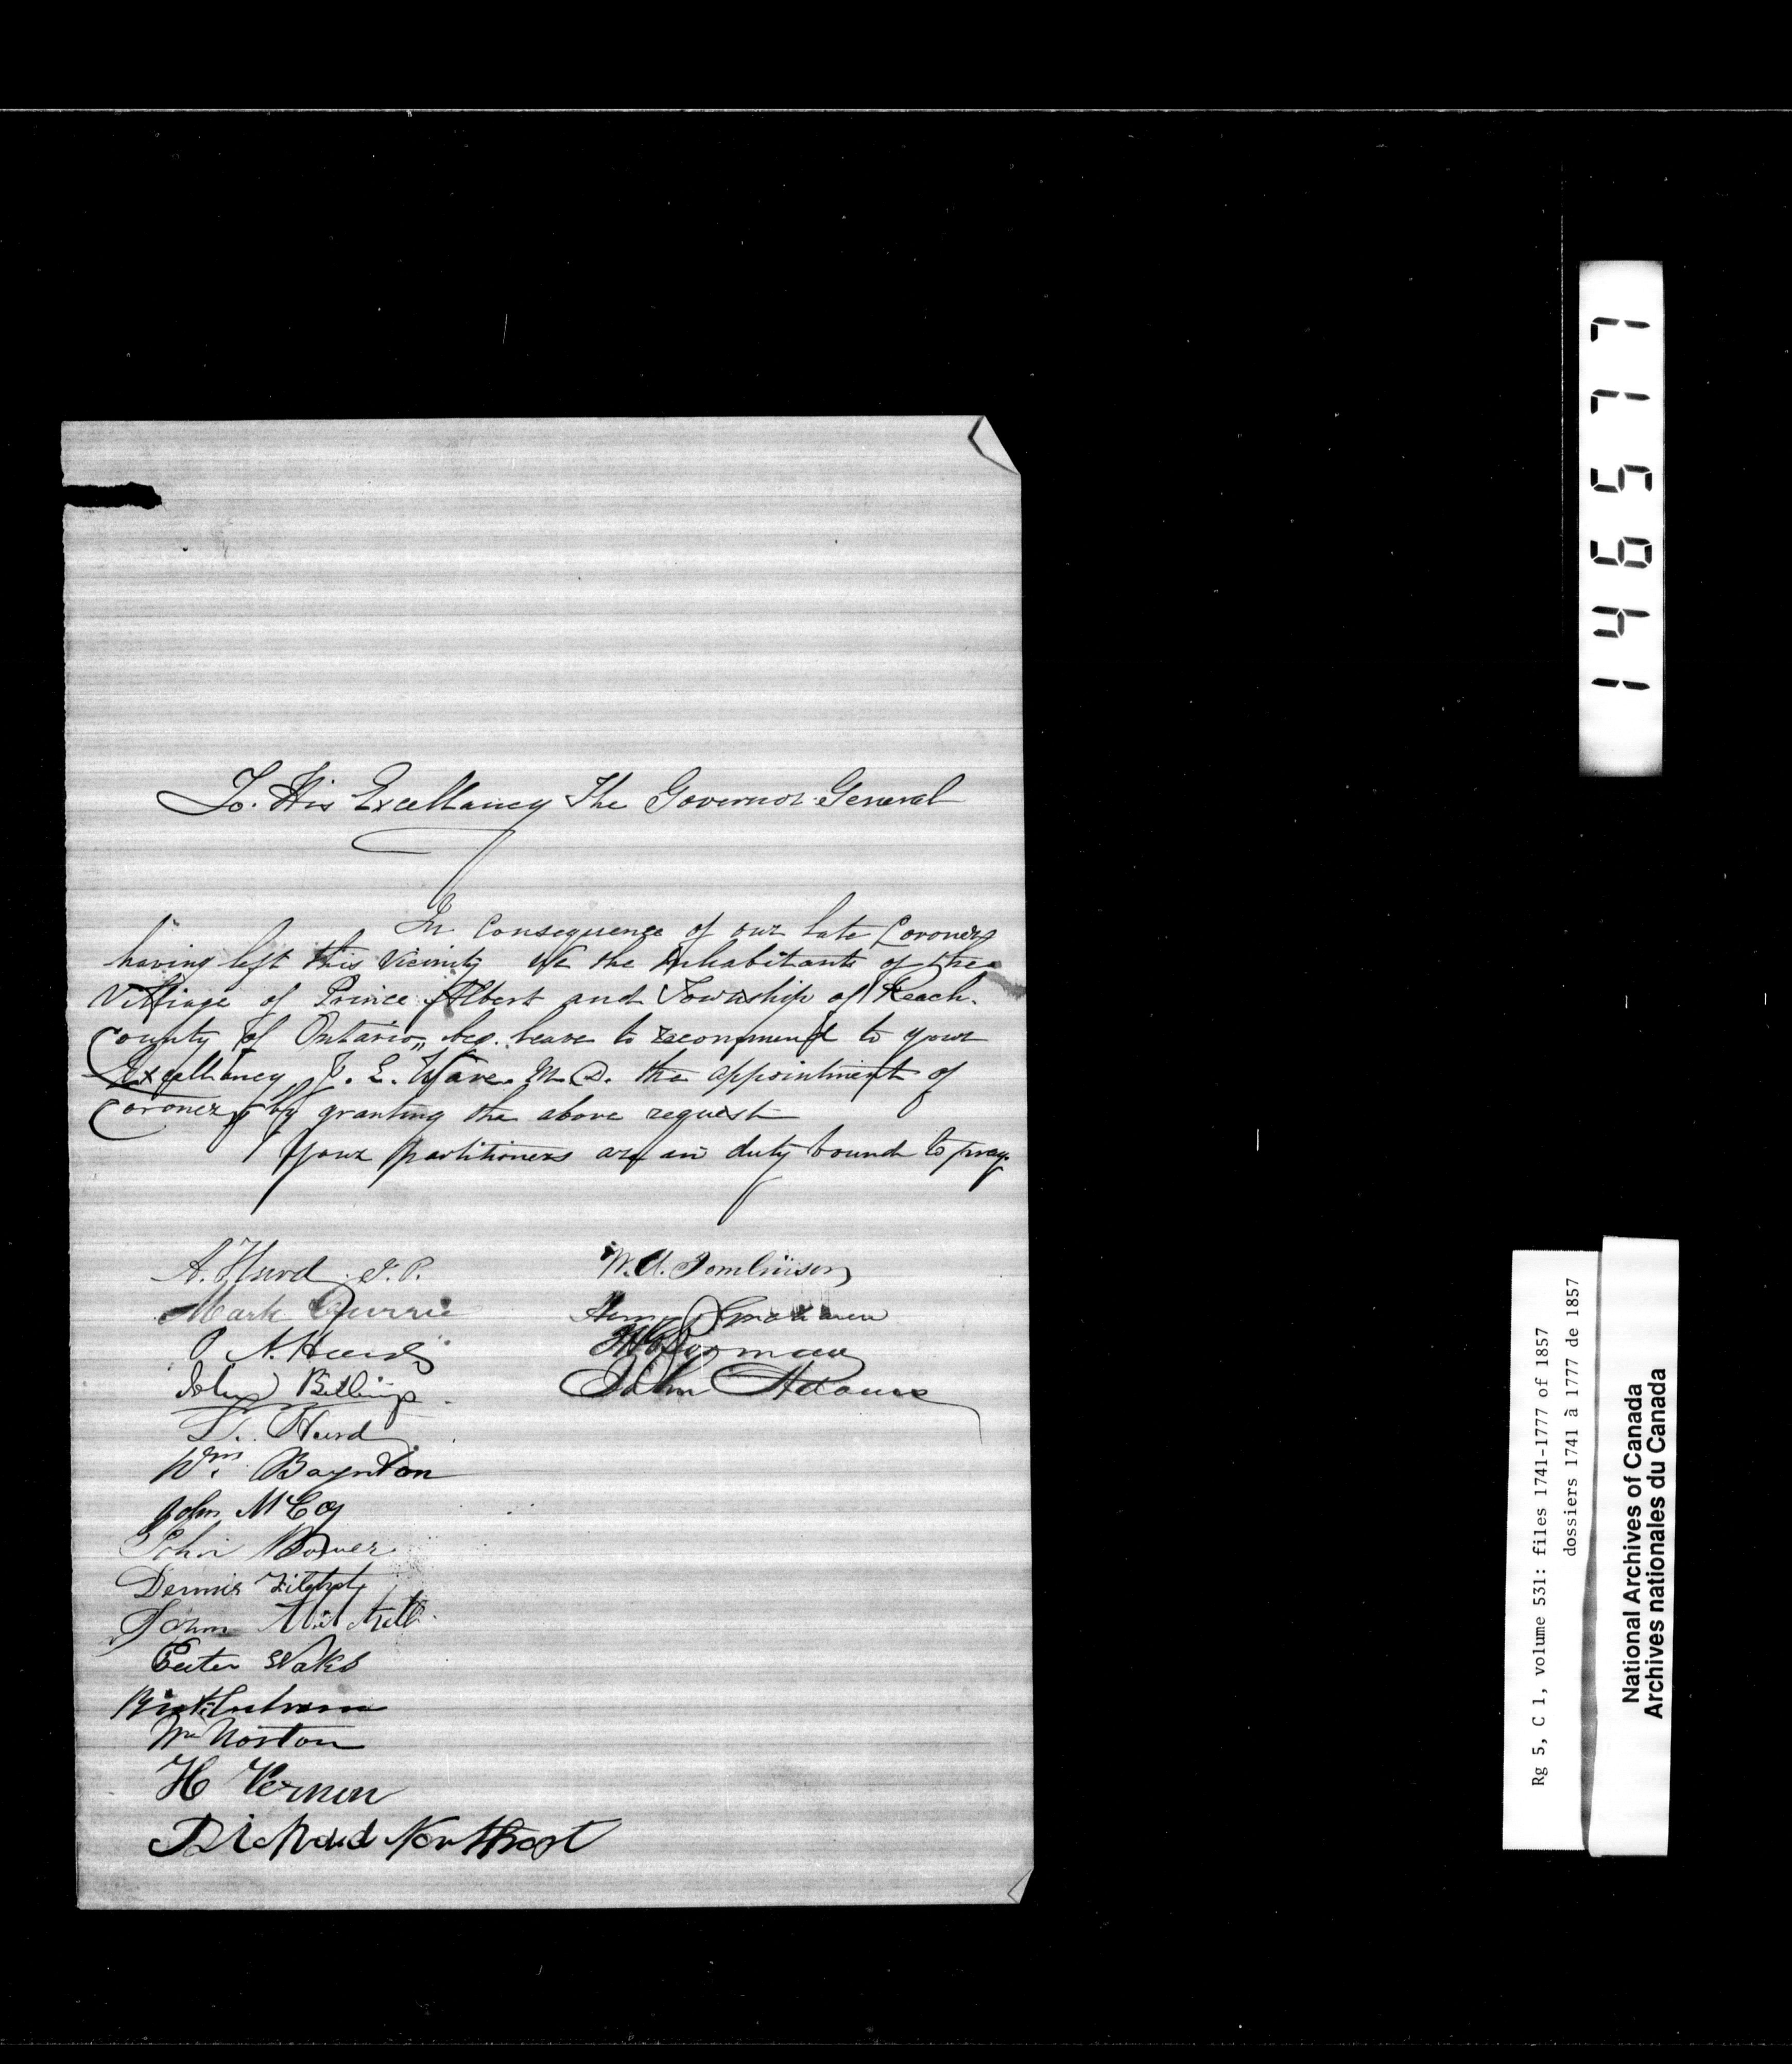 To. His Excellancy The Governor General
In Consequence of our late Coroner
having left this vicinity We the Inhabitants of the
Villiage of Prince Albert and Township of Reach.
County of Ontario, beg. leave to recommend to your
Excellancy J. E. Ware. M. D. the appointment of
Coroner, by granting the above request
Your partitioners are in duty bound to pray.
A. Hurd J. P.
W. H. Tomlinson
Mark Currie
Henry
P A. Hurd
Forman
John Billings
John Adams
T. Hurd
Wm. Baynton
John McCoy
John Bower
Dennis
John Mitchell
Peeter Wakes
Wm Norton
H Vernon
Richard Northcot
146577
Rg 5, C 1, volume 531: files 1741-1777 of 1857
dossiers 1741 à 1777 de 1857
National Archives of Canada
Archives nationales du Canada